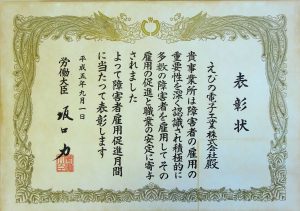 表彰状
えびの電子工業株式会社殿
貴事業所は障害者の雇用の
重要性を深く認識され積極的に
多数の障害者を雇用してその
雇用の促進と職業の安定に寄与
されました
よって障害者雇用促進月間
に当たって表彰します
平成五年九月一日
労働大臣 坂口力